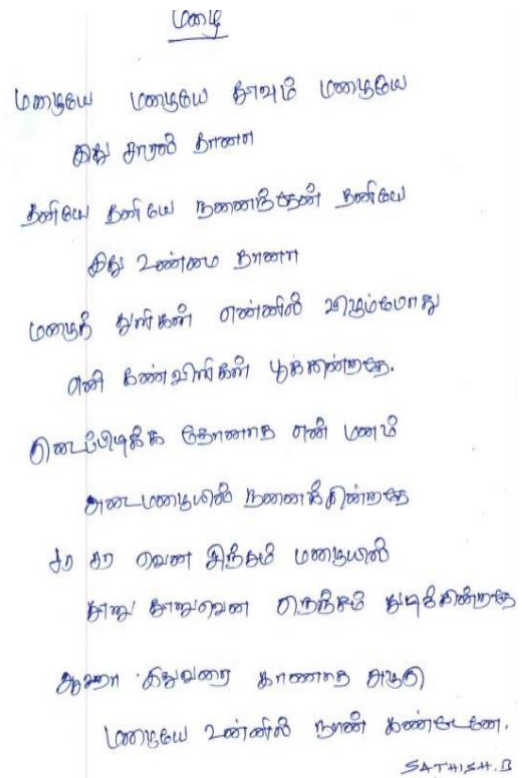 மழை
மழையே மழையே தூவும் மழையே
இது சாரல் தானா
தனியே தனியே நனைந்தேன் தனியே
இது உண்மை தானா
மழைத் துளிகள் எண்ணில் விழும்போது
என் கண்விழிகள் பூக்கின்றதே.
குடைப்பிடிக்க தோணாத என் மனம்
அடைமழையில் நனைக்கின்றதே
சர சர வென சிந்தும் மழையில்
துறு துறுவென நெஞ்சும் துடிக்கின்றதே
ஆஹா இதுவரை காணாத அழகு
மழையே உன்னில் நான் கண்டேனே.
SATHISH.B